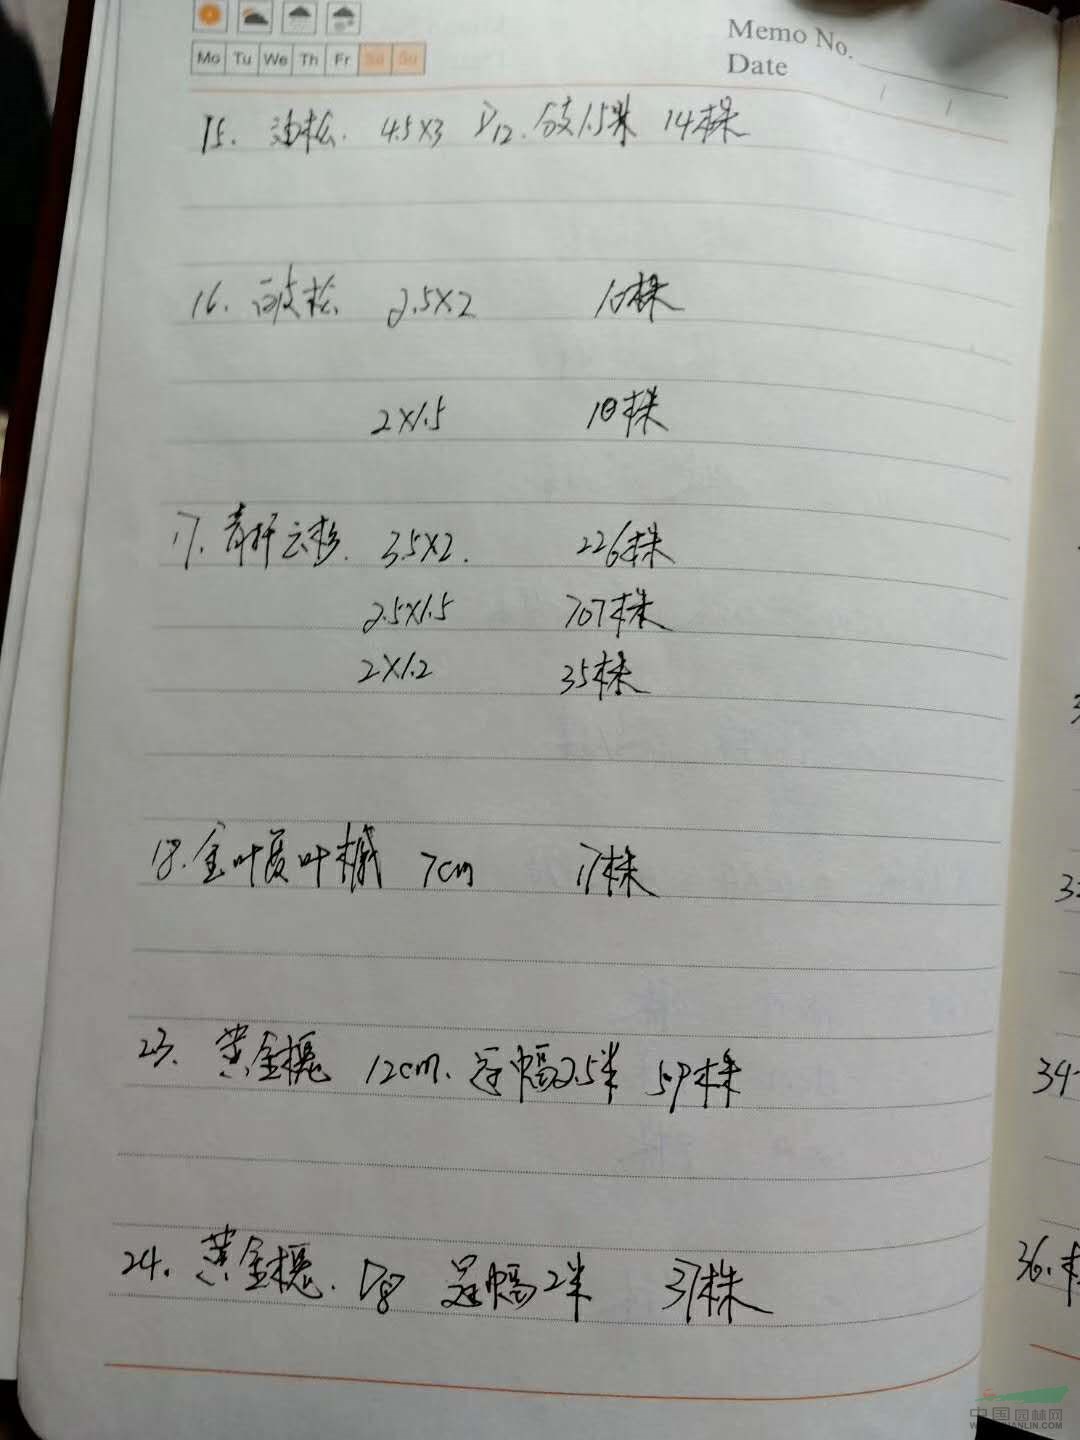 Mo Tu We Th Fr Sa Su
Memo No.
Date
15. 油松. 4.5×3 D12. 分支1.5米 14株
16. 白皮松 2.5×2 10株
2×1.5 10株
17. 青杆云杉. 3.5×2. 226株
2.5×1.5 707株
2×1.2 35株
18. 金叶复叶槭 7cm 17株
23. 黄金槐 12cm. 冠幅2.5米 59株
24. 黄金槐. D8 冠幅2米 37株
34
36.
中国园林网